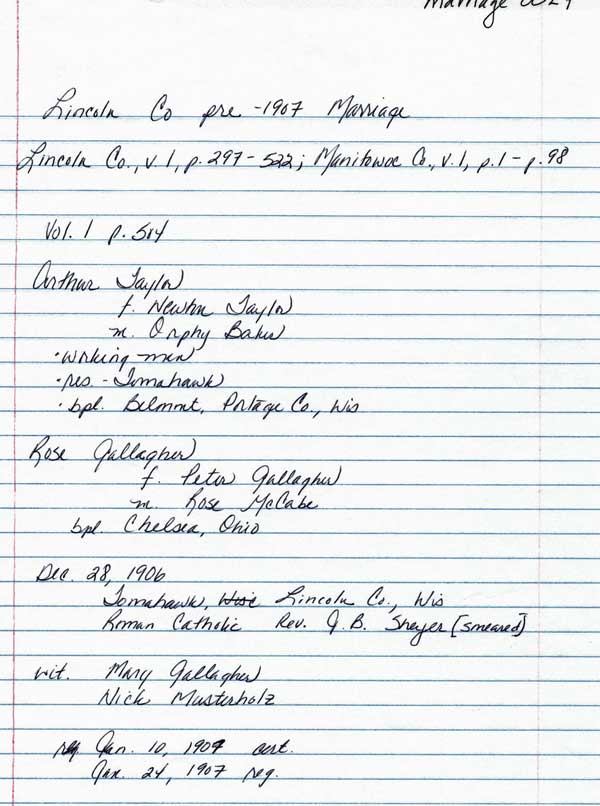 Marriage
Lincoln Co pre-1907 Marriage
Lincoln Co., v.1, p.297-522; Manitowoc Co., v.1, p.1-p.98
Vol. 1 p.514
Arthur Taylor
f. Newton Taylor
m. Orphy Baker
·working man
·res. - Tomahawk
·bpl. Belmont, Portage Co., Wis
Rose Gallagher
f. Peter Gallagher
m. Rose McCabe
bpl. Chelsea, Ohio
Dec. 28, 1906
Tomahawk, Wisc Lincoln Co., Wis
Roman Catholic Rev. J.B. Sheyer [smeared]
wit. Mary Gallagher
Nick Musterholz
reg Jan. 10, 1907 cert.
Jan. 24, 1907 reg.